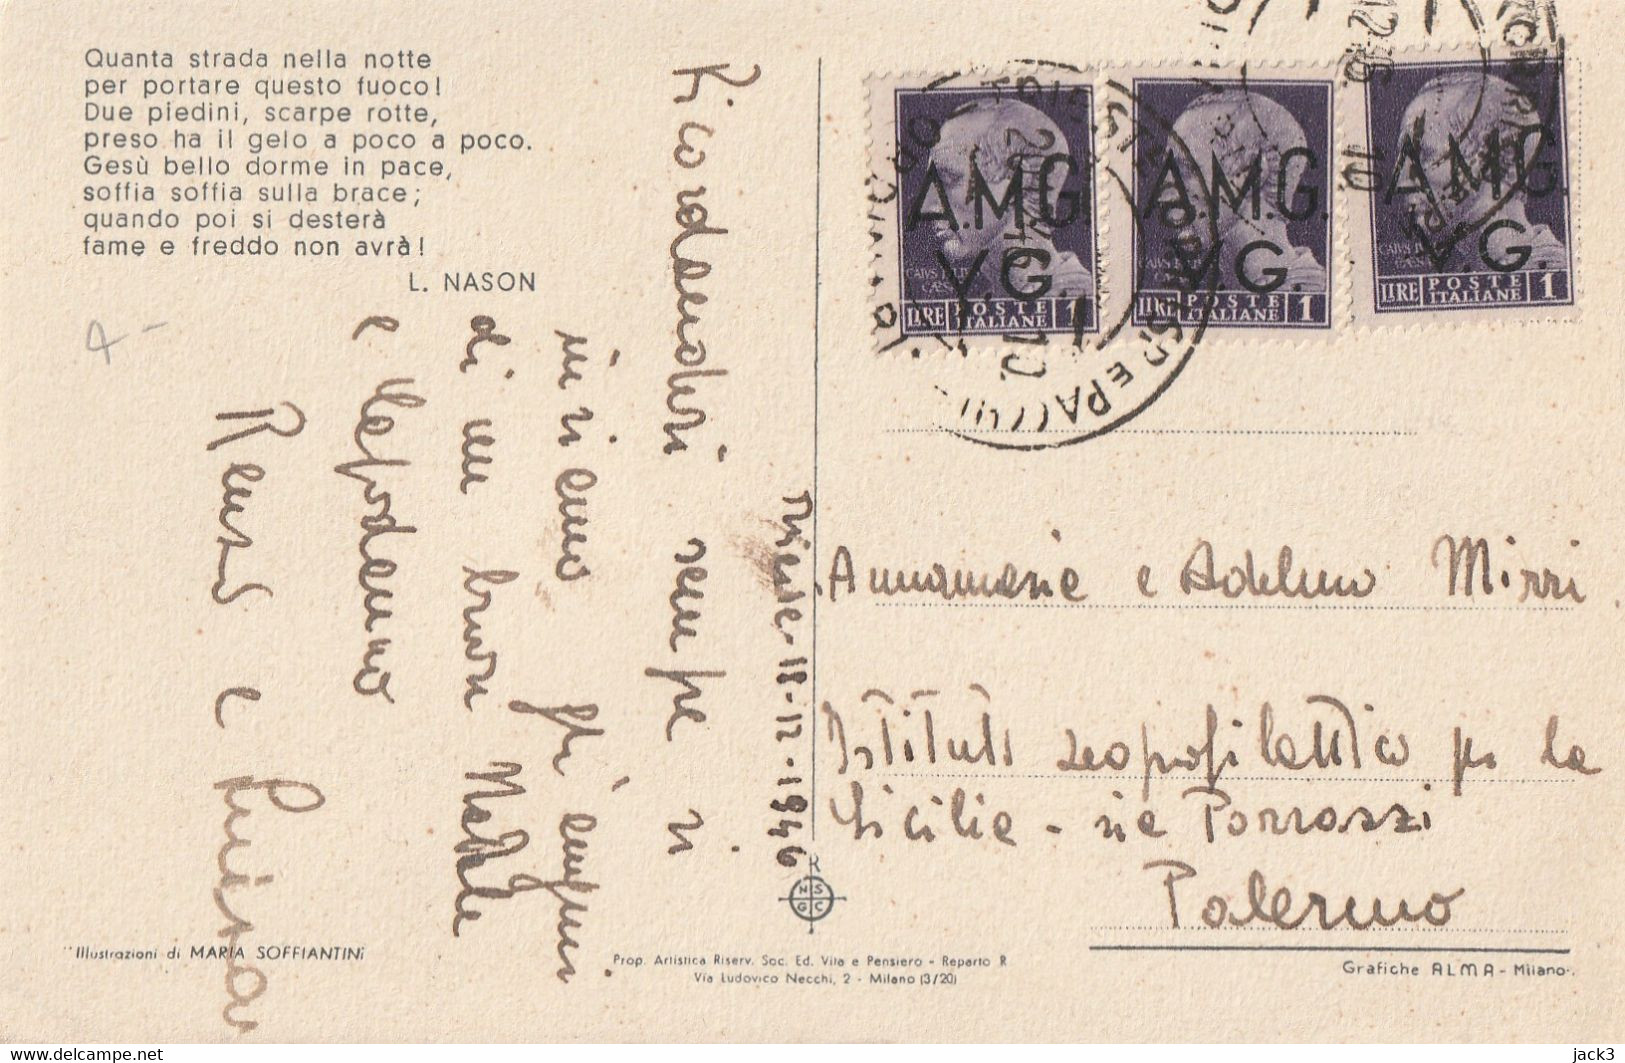 Quanta strada nella notte
per portare questo fuoco!
Due piedini, scarpe rotte,
preso ha il gelo a poco a poco.
Gesù bello dorme in pace,
soffia soffia sulla brace;
quando poi si desterà
fame e freddo non avrà!
L. NASON
Ricordandovi sempre vi
inviamo gli auguri
di un buon Natale
e Capodanno
Renzo e
Trieste - 18-12-1946
A.M.G.
V.G.
LIRE POSTE ITALIANE 1
A.M.G.
V.G.
LIRE POSTE ITALIANE 1
A.M.G.
V.G.
LIRE POSTE ITALIANE 1
Annamaria e Adelmo Mirri
Istituto zooprofilattico per la
Sicilia - via Porrazzi
Palermo
R
N S
G C
Illustrazioni di MARIA SOFFIANTINI
Prop. Artistica Riserv. Soc. Ed. Vita e Pensiero - Reparto R
Via Ludovico Necchi, 2 - Milano (3/20)
Grafiche ALMA - Milano.
www.delcampe.net
jack3